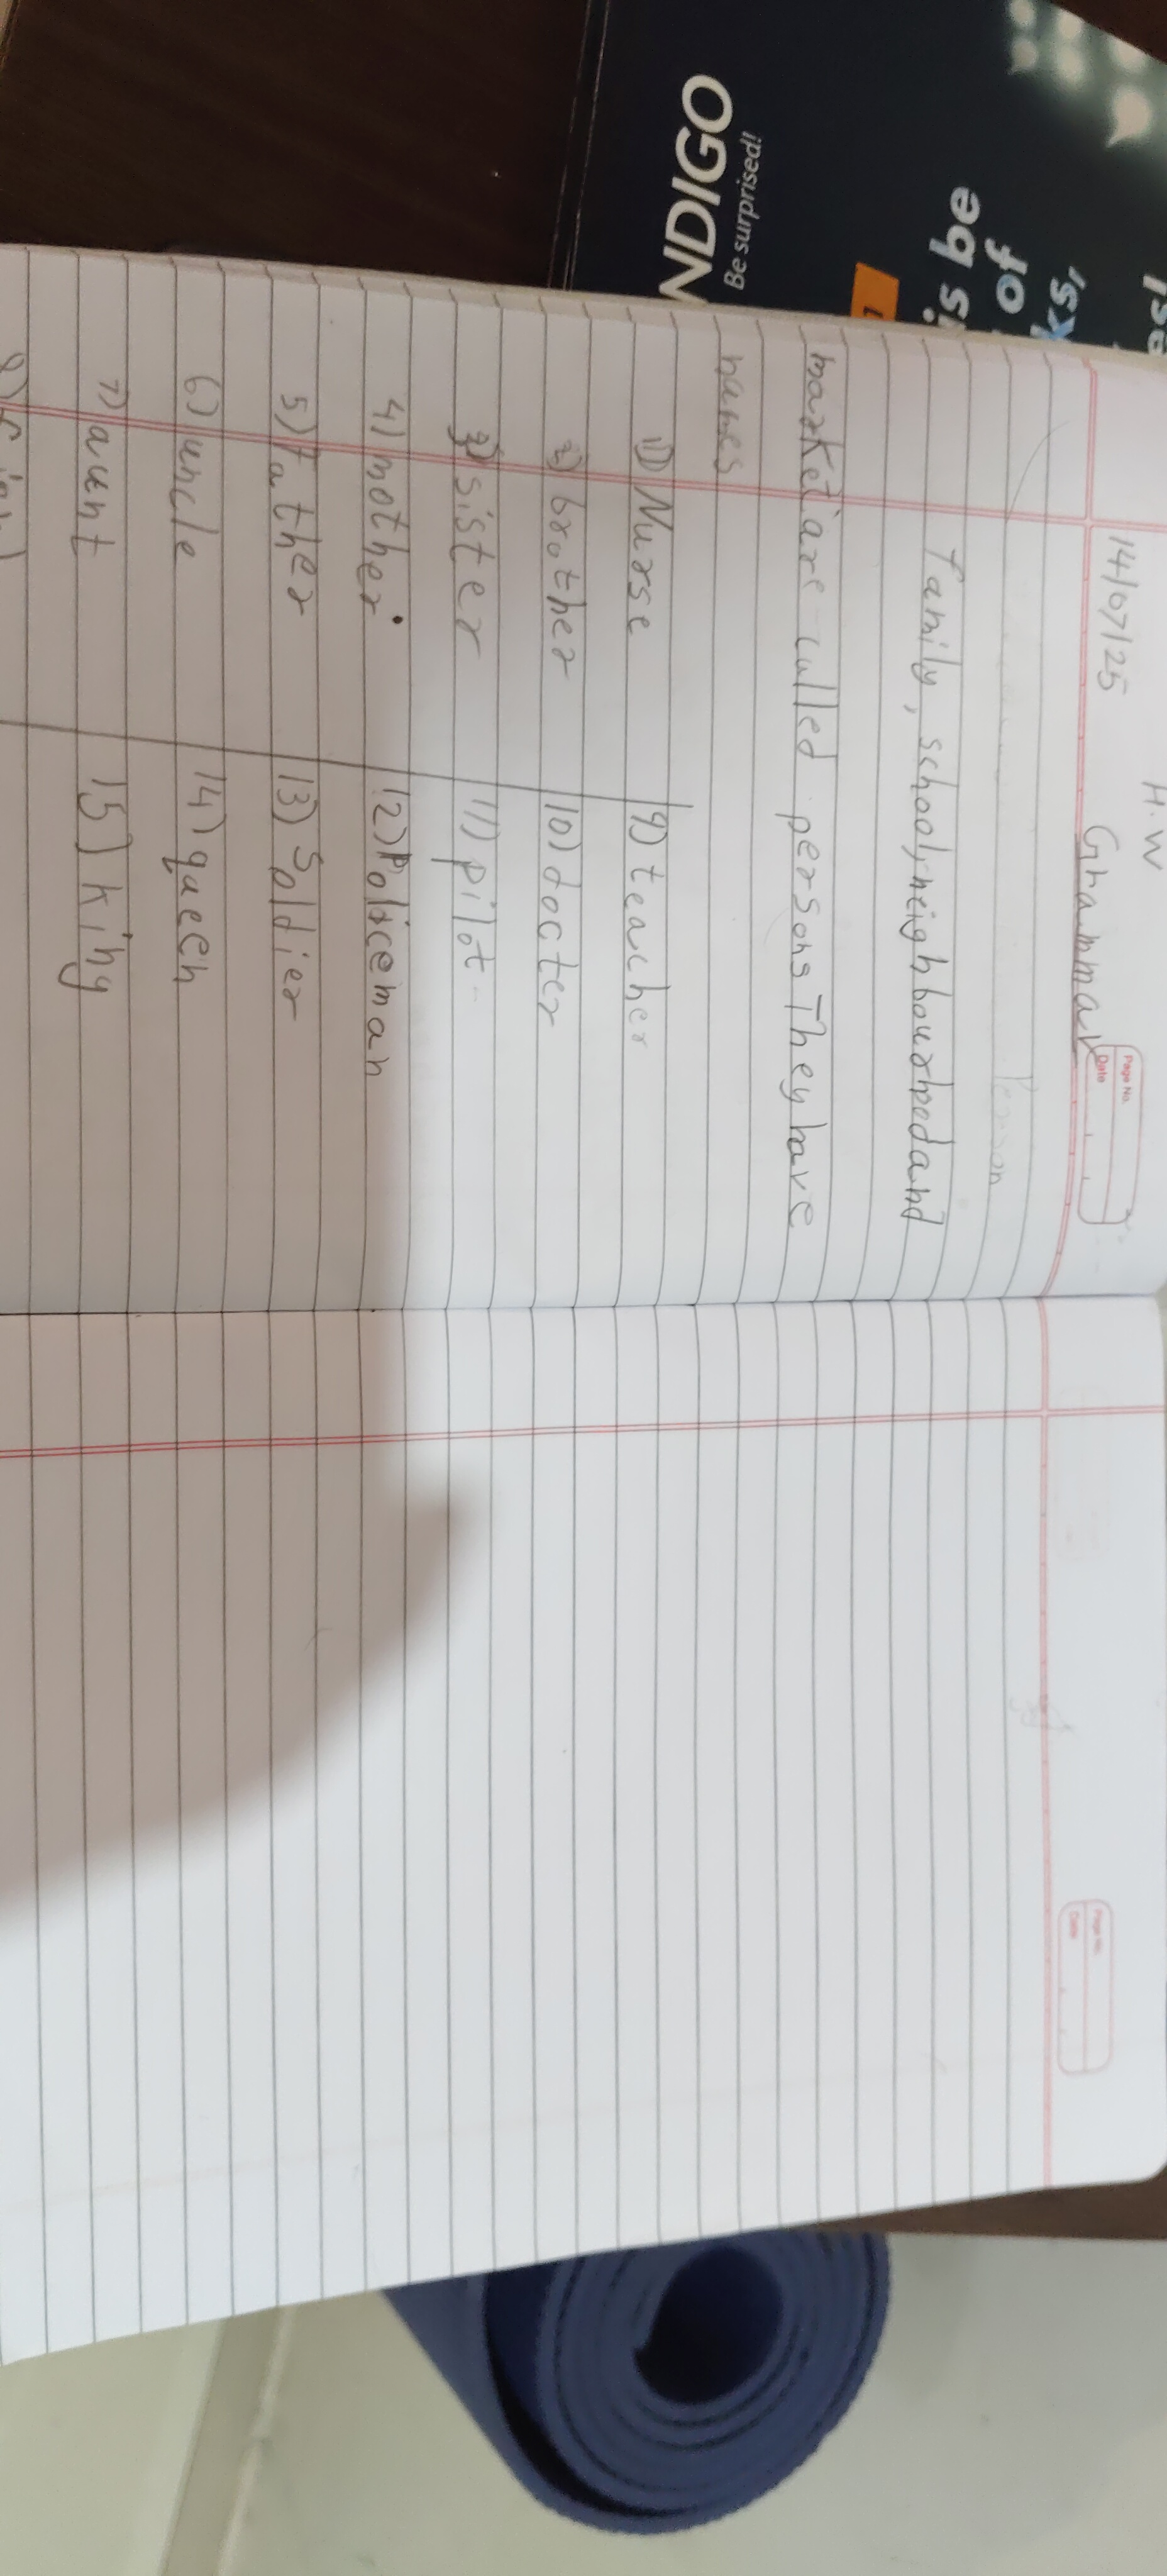 H.W
14/07/25 Grammar
Page No.
Date
Person
family, school, neighbourhod and
market are called persons They have
names
1) Nurse 9) teacher
2) brother 10) docter
3) sister 11) pilot
4) mother 12) Policeman
5) father 13) Soldier
6) uncle 14) queen
7) aunt 15) king
8)
Page No.
Date
NDIGO
Be surprised!
is be
of
ks,